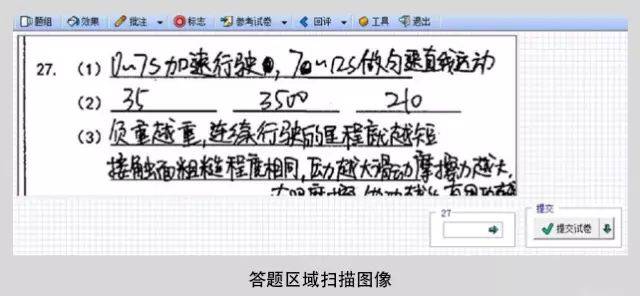 题组 效果 批注 标志 参考试卷 回评 工具 退出
27. (1) 0~7s加速行驶, 7~12s做匀速直线运动
(2) 35 3500 210
(3) 负重越重,连续行驶的里程就越短
接触面粗糙程度相同,压力越大滑动摩擦力越大,
27
提交
提交试卷
答题区域扫描图像